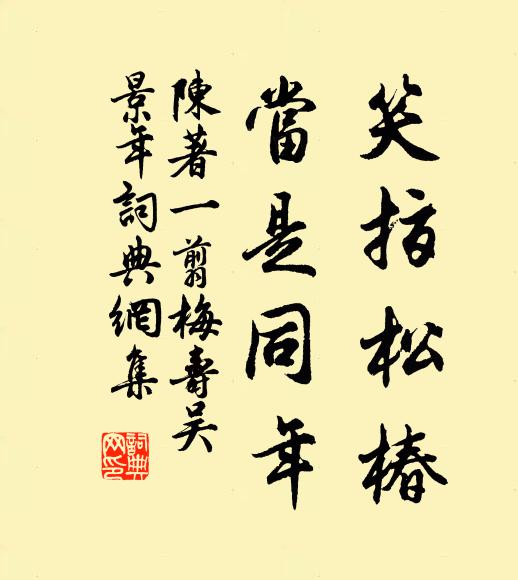 笑指松椿
當是同年
陳著一翦梅壽吳
景年詞典網集
詞典网印